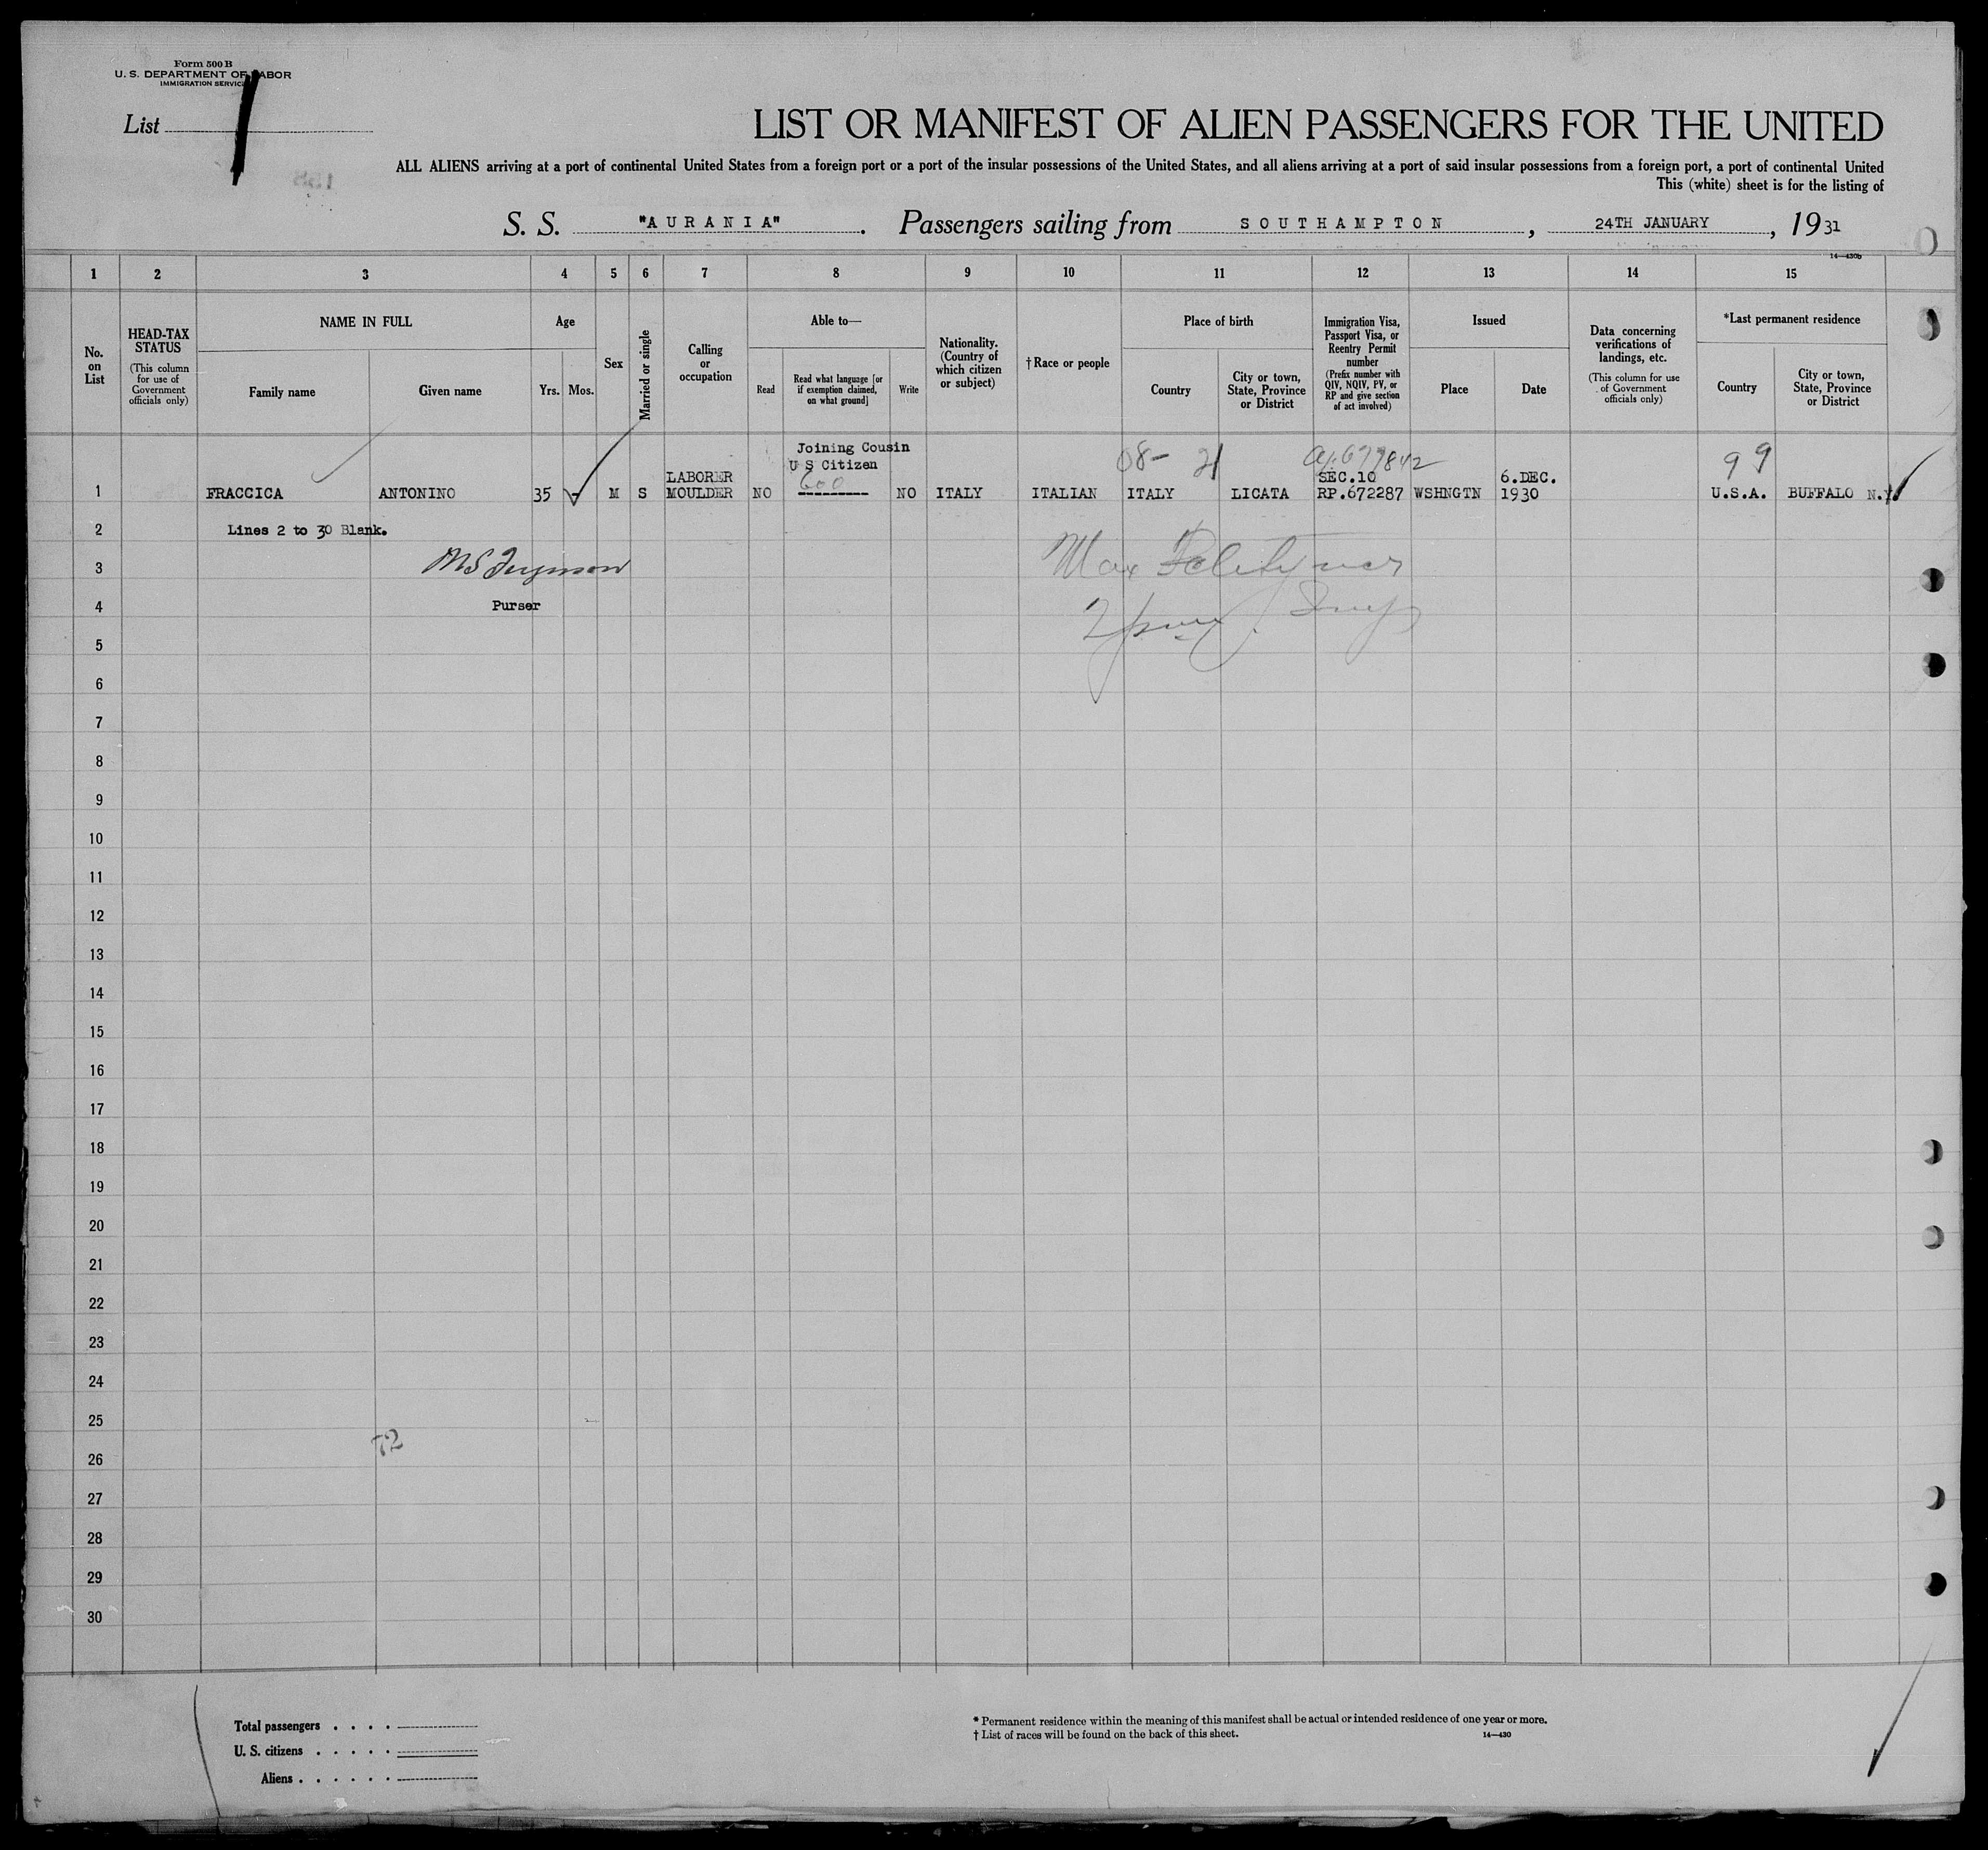 Form 500 B
U. S. DEPARTMENT OF LABOR
IMMIGRATION SERVICE
List 1
LIST OR MANIFEST OF ALIEN PASSENGERS FOR THE UNITED
ALL ALIENS arriving at a port of continental United States from a foreign port or a port of the insular possessions of the United States, and all aliens arriving at a port of said insular possessions from a foreign port, a port of continental United
This (white) sheet is for the listing of
S. S. "AURANIA". Passengers sailing from SOUTHAMPTON, 24TH JANUARY, 1931
14—430b
1 2 3 4 5 6 7 8 9 10 11 12 13 14 15
No. on List
HEAD-TAX STATUS
(This column for use of Government officials only)
NAME IN FULL
Family name
Given name
Age
Yrs. Mos.
Sex
Married or single
Calling or occupation
Able to—
Read
Read what language [or if exemption claimed, on what ground]
Write
Nationality. (Country of which citizen or subject)
†Race or people
Place of birth
Country
City or town, State, Province or District
Immigration Visa, Passport Visa, or Reentry Permit number
(Prefix number with QIV, NQIV, PV, or RP and give section of act involved)
Issued
Place
Date
Data concerning verifications of landings, etc.
(This column for use of Government officials only)
*Last permanent residence
Country
City or town, State, Province or District
Joining Cousin
U S Citizen
600
08- 21
99
LABORER
SEC.10
6.DEC.
1 FRACCICA ANTONINO 35 - M S MOULDER NO --------- NO ITALY ITALIAN ITALY LICATA RP.672287 WSHNGTN 1930 U.S.A. BUFFALO N.Y.
2 Lines 2 to 30 Blank.
3
4 Purser
5
6
7
8
9
10
11
12
13
14
15
16
17
18
19
20
21
22
23
24
25
72
26
27
28
29
30
Total passengers . . . .
U. S. citizens . . . . .
Aliens . . . . . .
* Permanent residence within the meaning of this manifest shall be actual or intended residence of one year or more.
† List of races will be found on the back of this sheet.
14—430